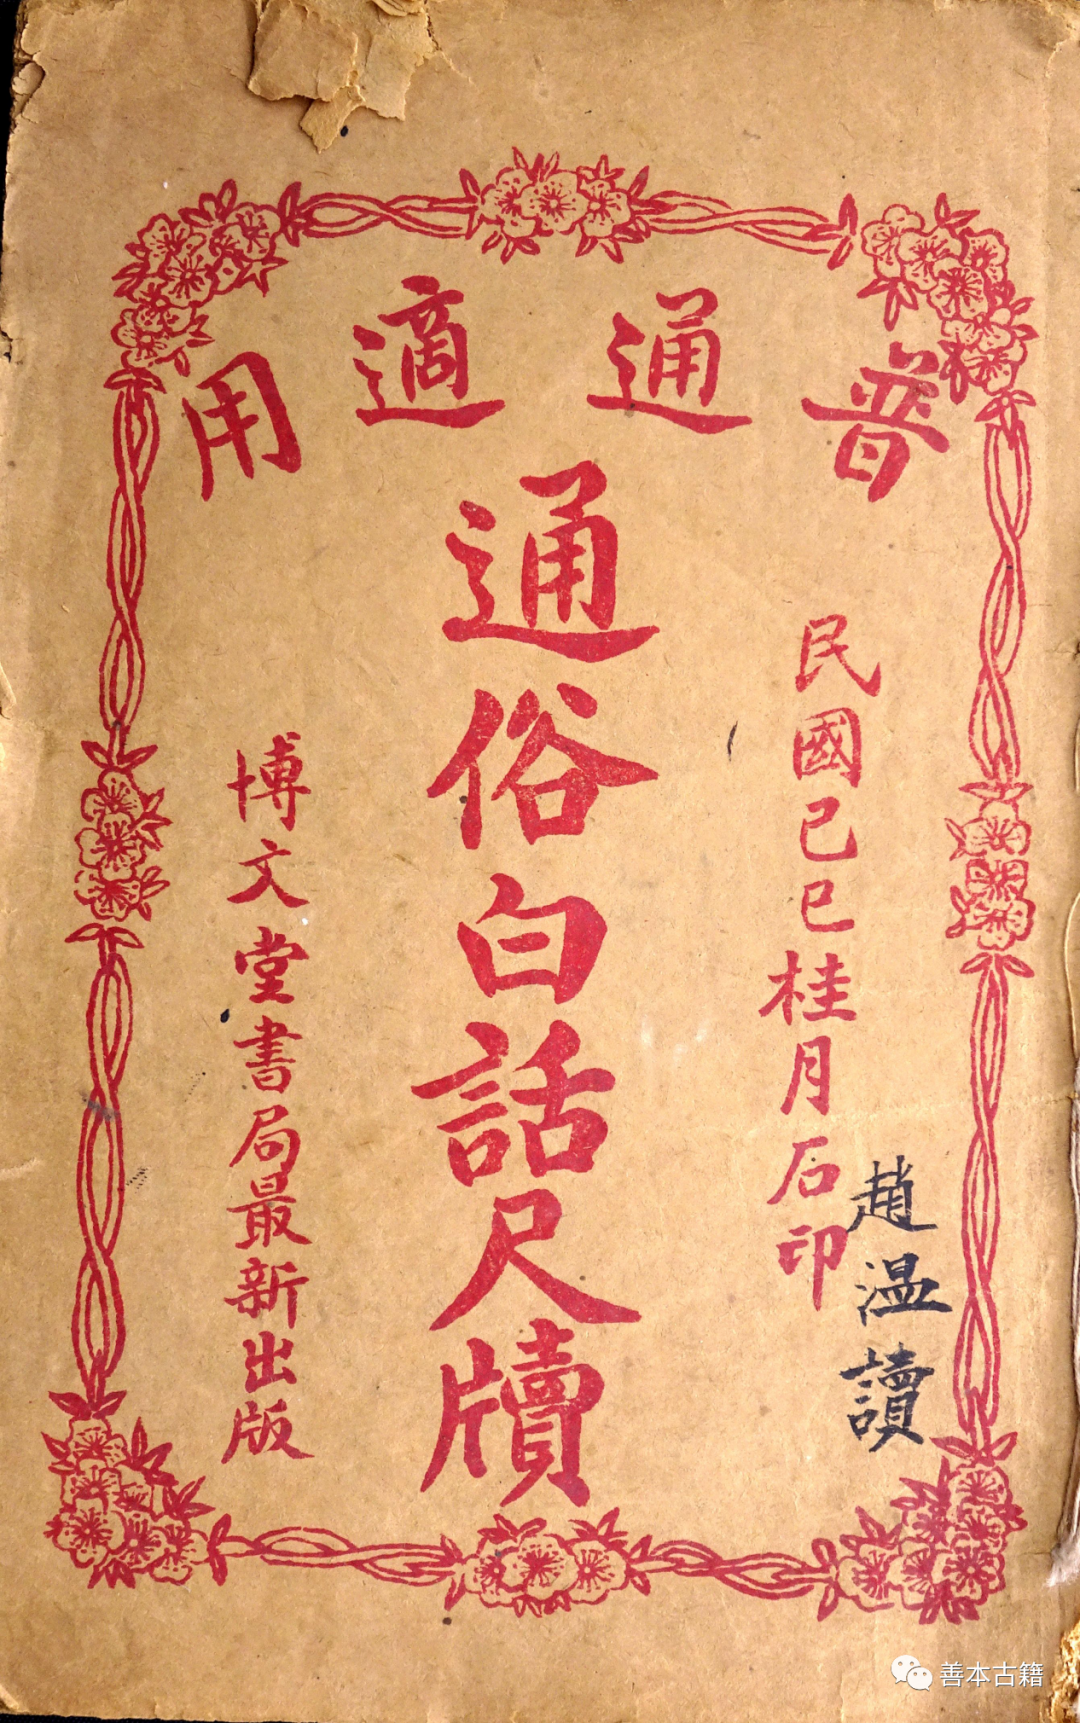 普通適用
民國己巳桂月石印
趙温讀
通俗白話尺牘
博文堂書局最新出版
善本古籍